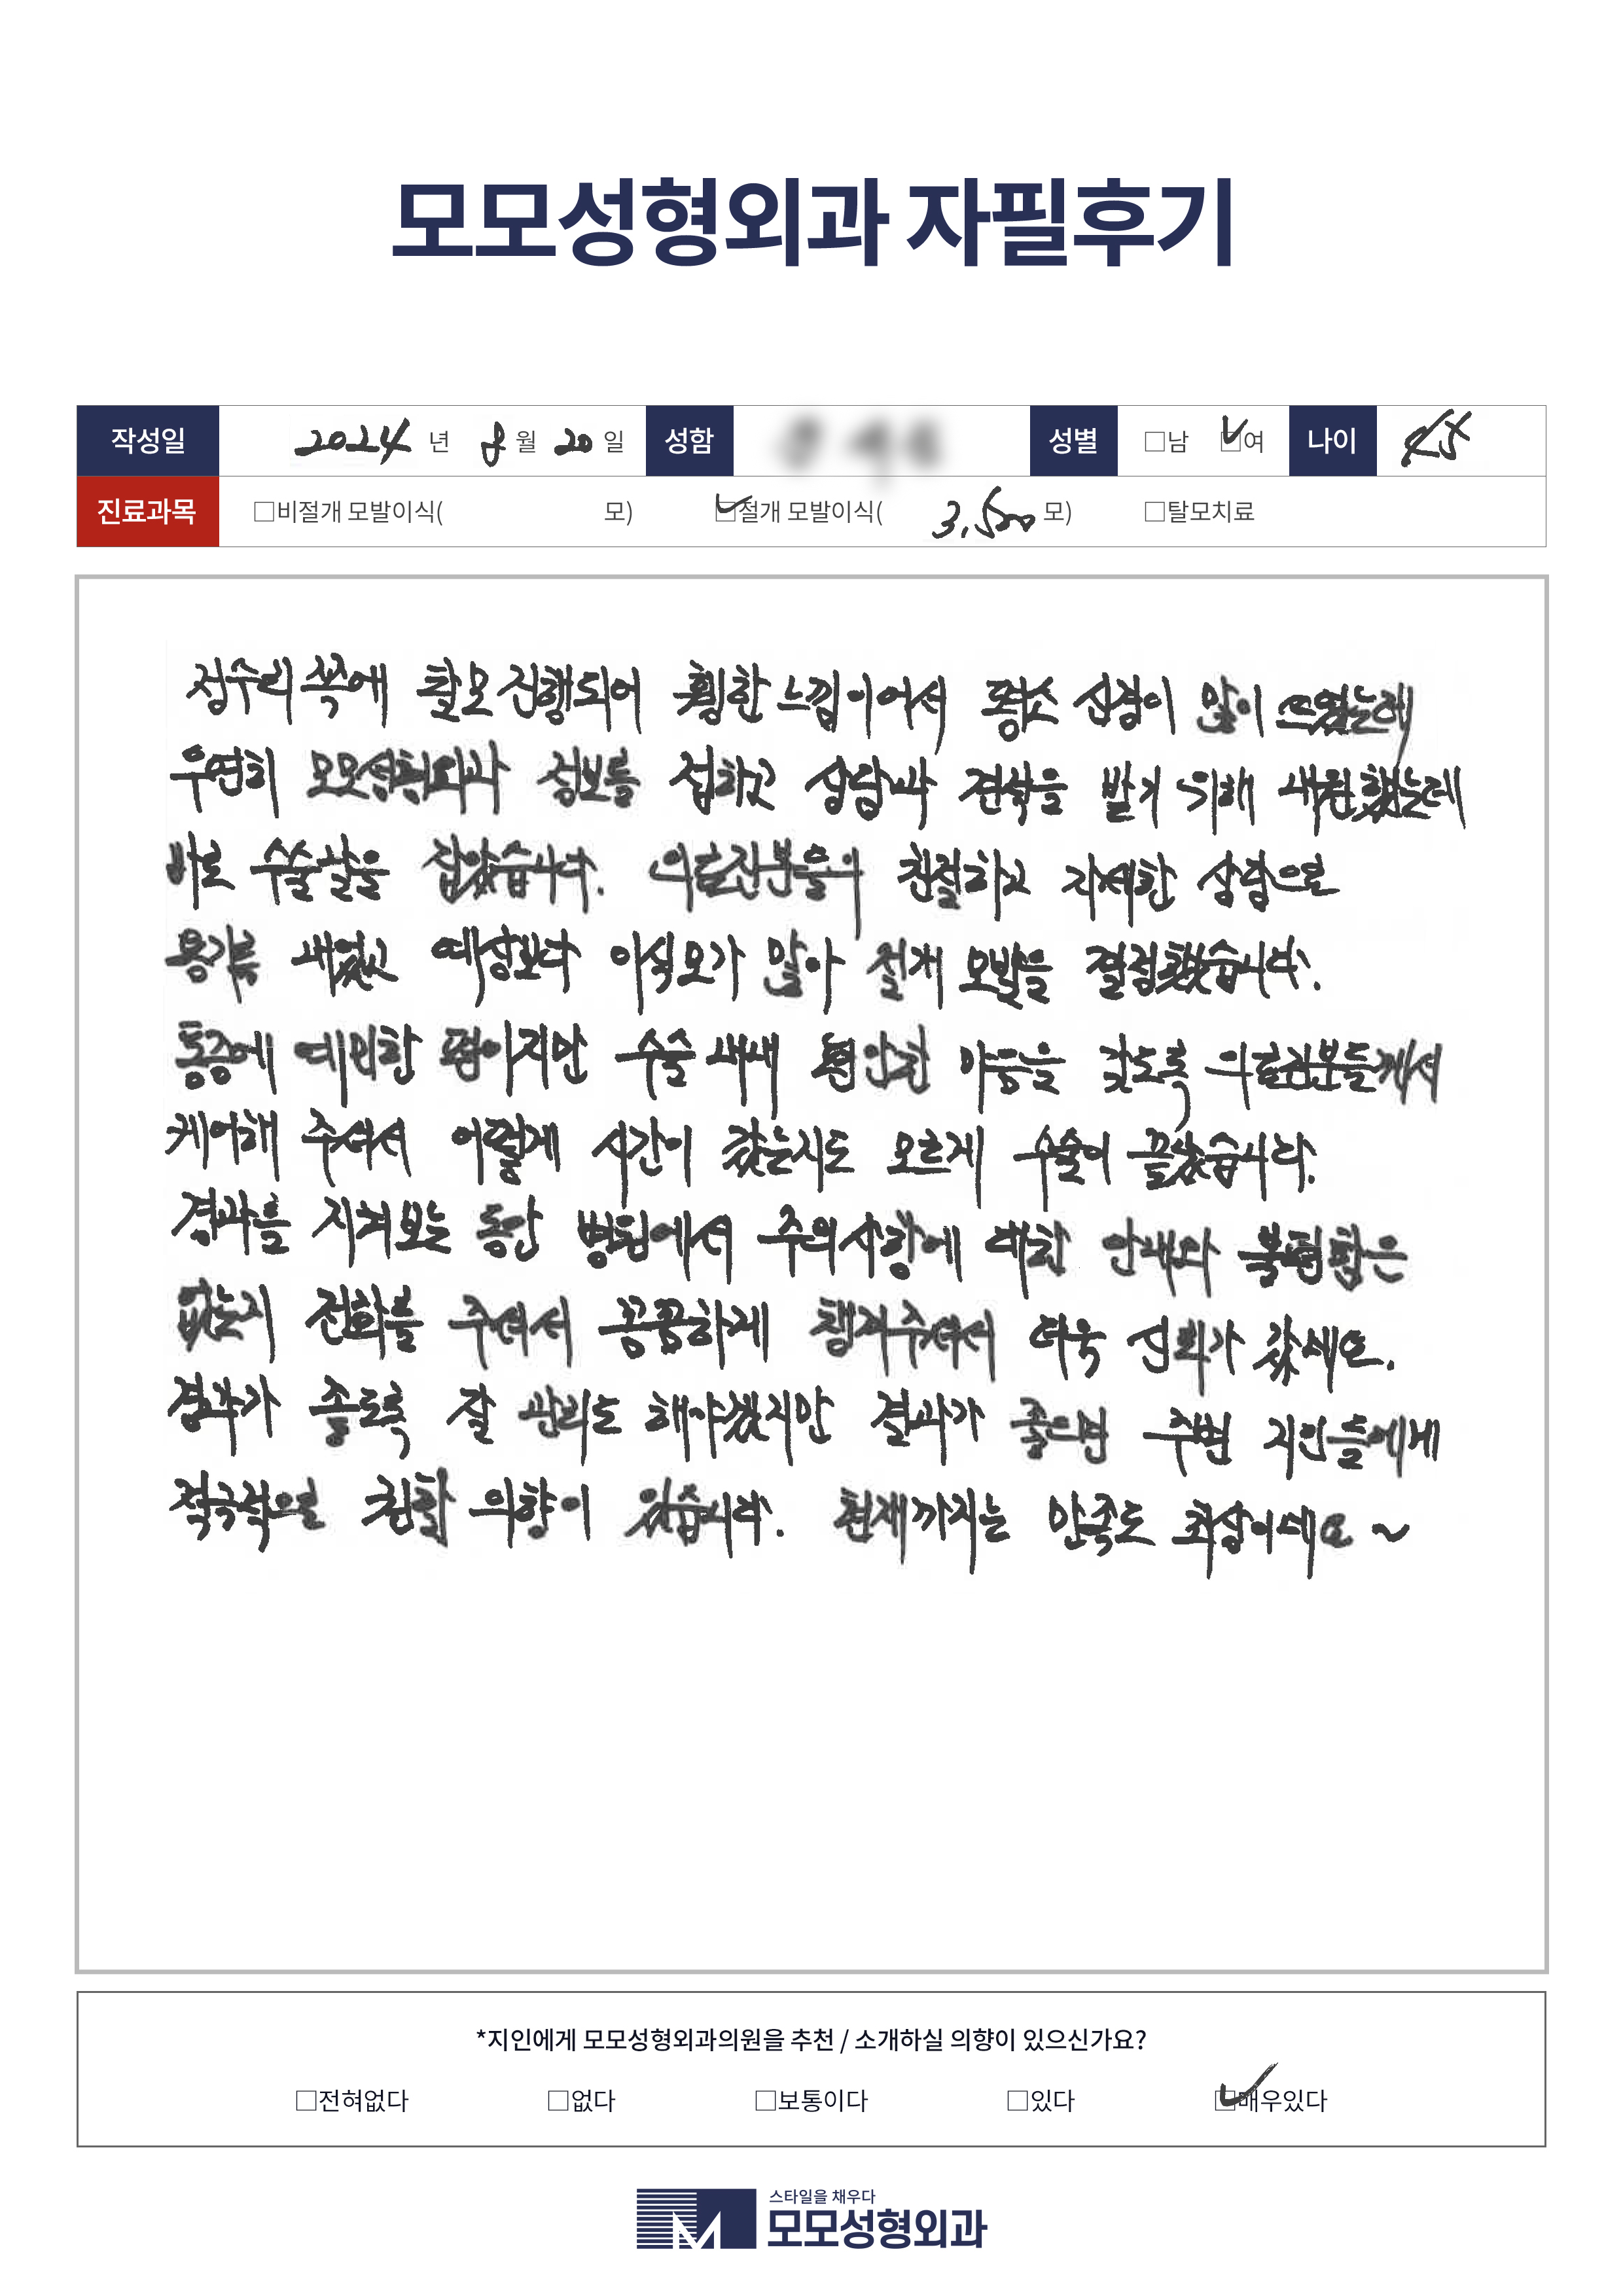 모모성형외과 자필후기
작성일 2024 년 8 월 20 일 성함 성별 □남 ☑여 나이 45
진료과목 □비절개 모발이식( 모) ☑절개 모발이식( 3,500 모) □탈모치료
정수리 쪽에 탈모 진행되어 휑한 느낌이어서 평소 신경이 많이 쓰였는데
우연히 모모성형외과 정보를 접하고 상담과 견적을 받기 위해 내원했는데
바로 수술날을 잡았습니다. 의료진분들의 친절하고 자세한 상담으로
용기를 내었고 예상보다 이식모가 많아 절개 모발을 결정했습니다.
통증에 예민한 편이지만 수술 내내 편안한 마음을 갖도록 의료진분들께서
케어해 주셔서 어떻게 시간이 갔는지도 모르게 수술이 끝났습니다.
경과를 지켜보는 동안 병원에서 주의사항에 대한 안내와 불편함은
없는지 전화를 주셔서 꼼꼼하게 챙겨주셔서 더욱 신뢰가 갔네요.
경과가 좋도록 잘 관리는 해야겠지만 결과가 좋으면 주변 지인들에게
적극적으로 추천할 의향이 있습니다. 현재까지는 만족도 최상이네요~
*지인에게 모모성형외과의원을 추천 / 소개하실 의향이 있으신가요?
□전혀없다 □없다 □보통이다 □있다 ☑매우있다
스타일을 채우다
모모성형외과